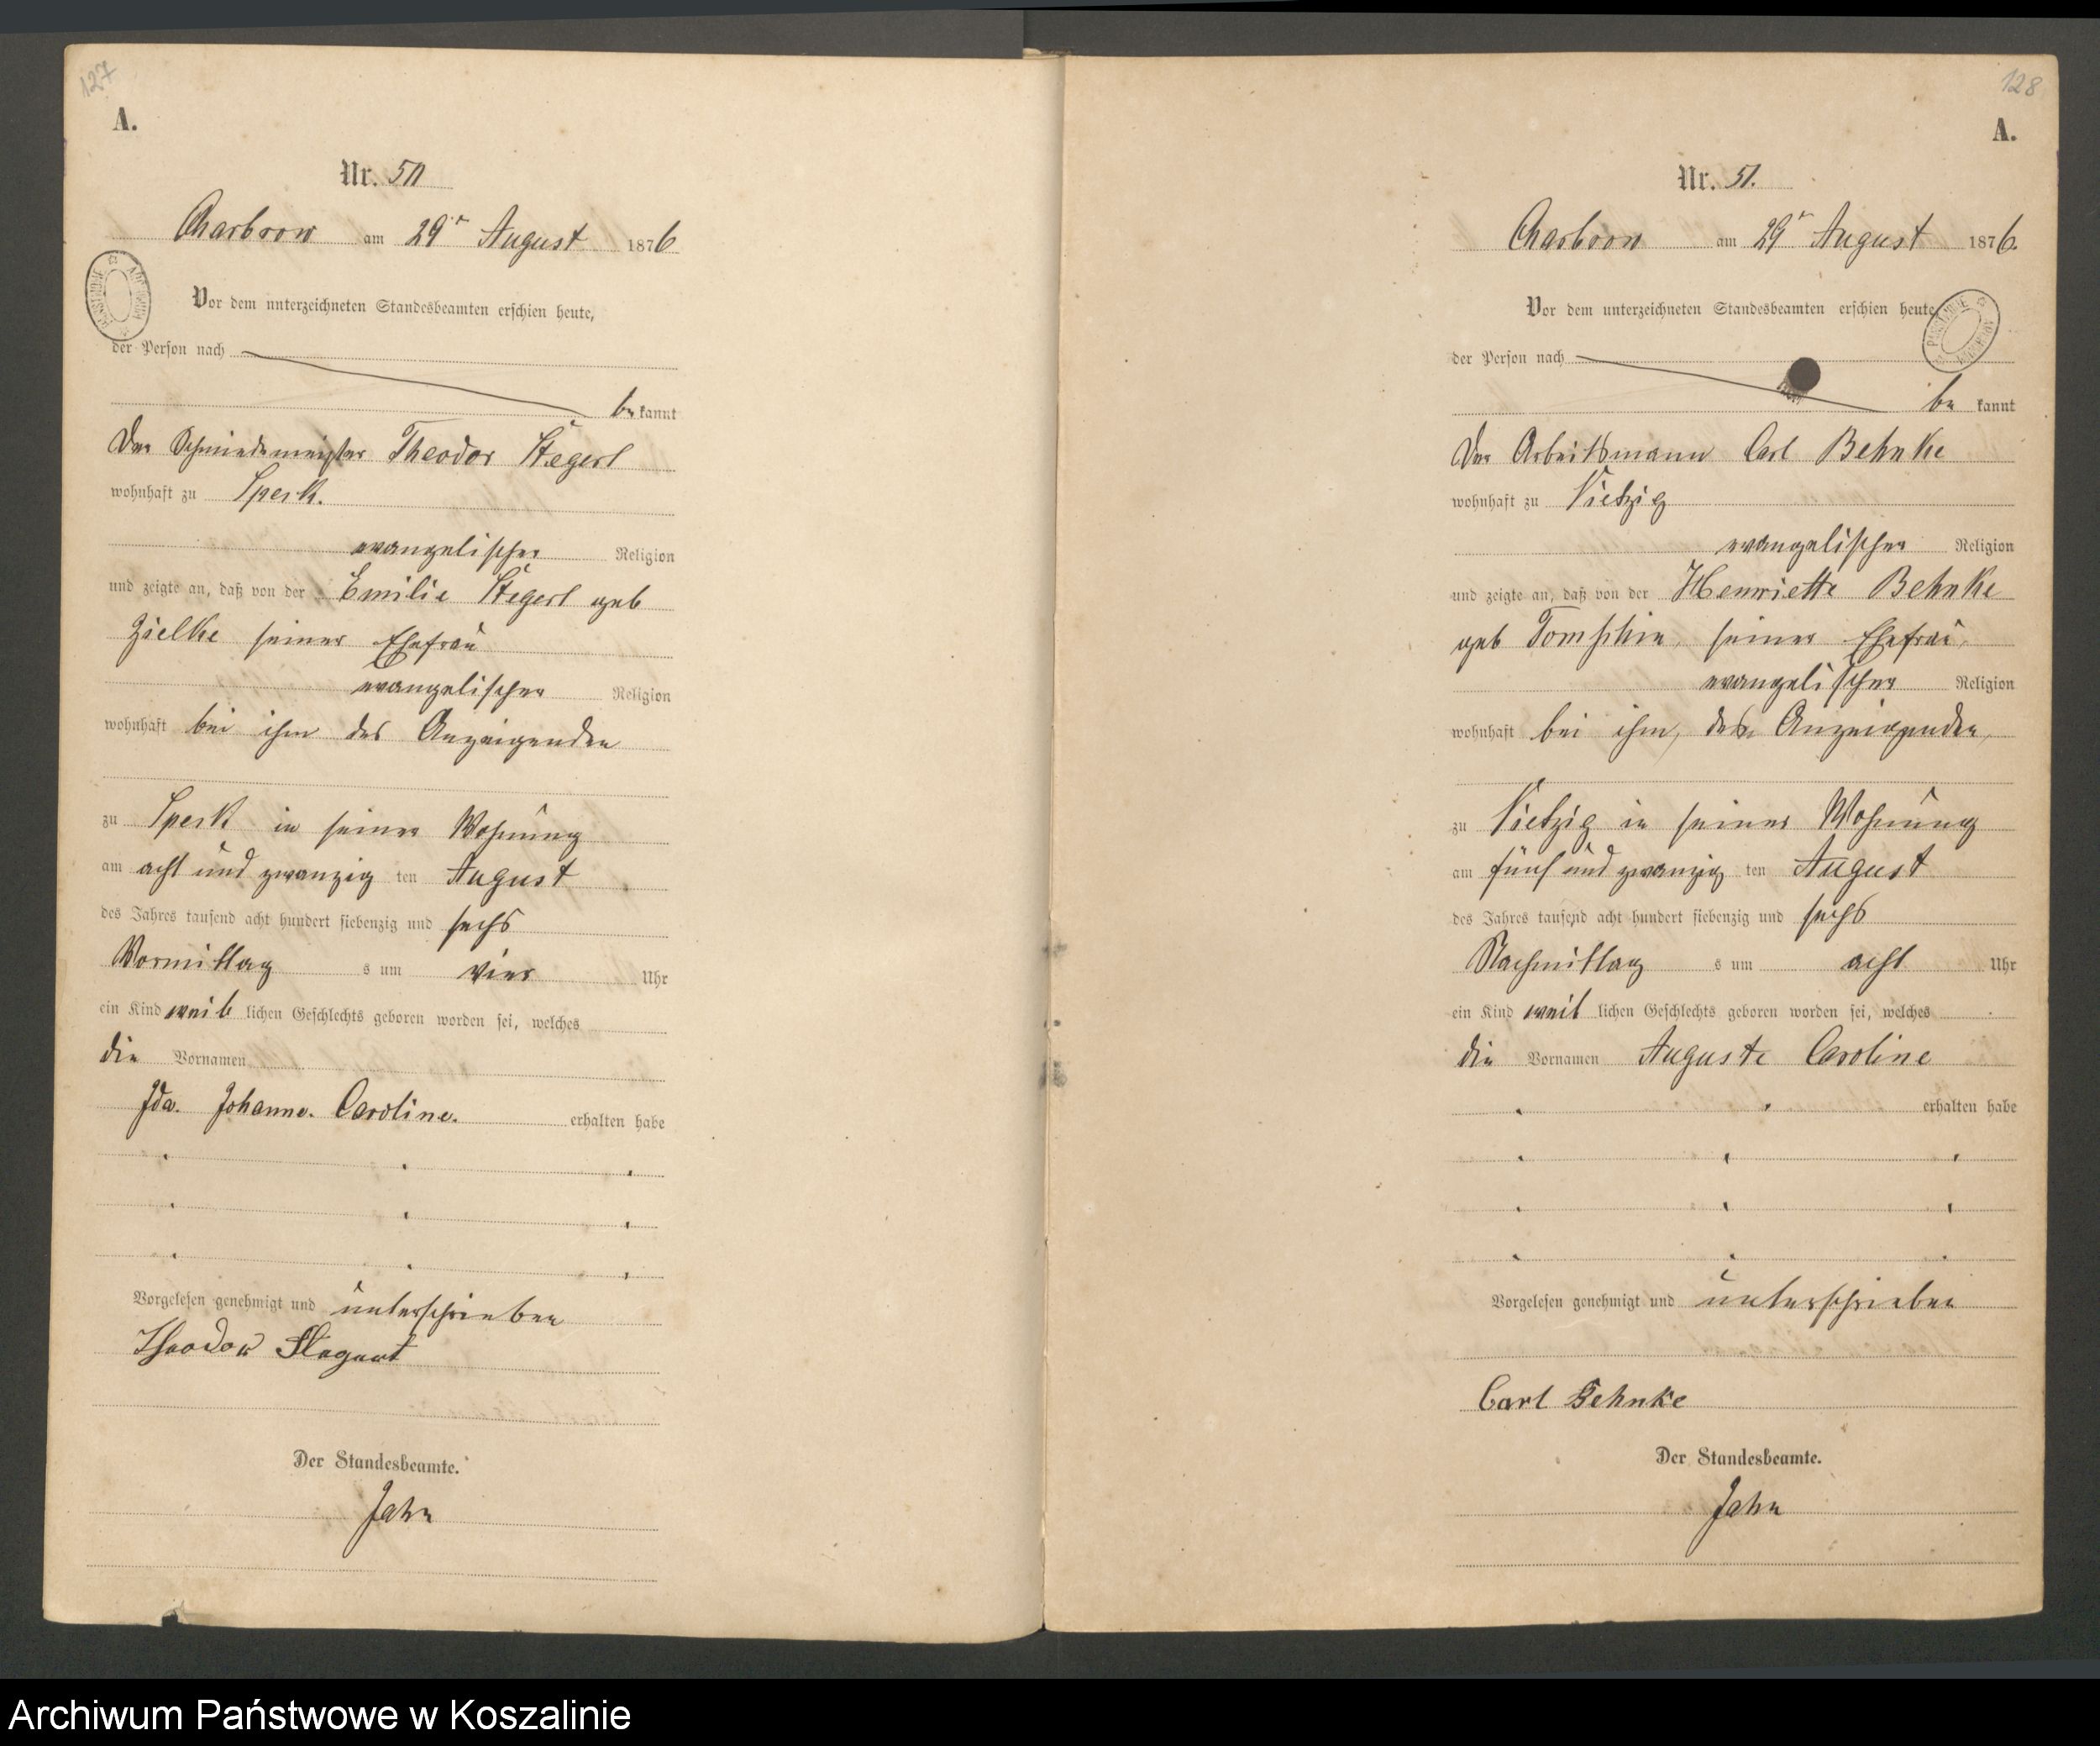 127
A.
Nr. 50
Charbrow am 29n August 1876
Vor dem unterzeichneten Standesbeamten erschien heute,
der Person nach
be kannt
Der Schmiedemeister Theodor Stegert
wohnhaft zu Speck.
evangelischer Religion
und zeigte an, daß von der Emilie Stegert geb
Zielke seiner Ehefrau
evangelischer Religion
wohnhaft bei ihm des Anzeigenden
zu Speck in seiner Wohnung
am acht und zwanzig ten August
des Jahres tausend acht hundert siebenzig und sechs
Vormittag s um vier Uhr
ein Kind weib lichen Geschlechts geboren worden sei, welches
die Vornamen
Ida. Johanne. Caroline. erhalten habe
Vorgelesen genehmigt und unterschrieben
Theodor Stegert
Der Standesbeamte.
Jahn
128
A.
Nr. 51.
Charbrow am 29n August 1876.
Vor dem unterzeichneten Standesbeamten erschien heute
der Person nach
be kannt
Der Arbeitsmann Carl Behnke
wohnhaft zu Vietzig
evangelischer Religion
und zeigte an, daß von der Henriette Behnke
geb seiner Ehefrau,
evangelischer Religion
wohnhaft bei ihm, des Anzeigenden,
zu Vietzig in seiner Wohnung
am fünf und zwanzig ten August
des Jahres tausend acht hundert siebenzig und sechs
Nachmittag s um acht Uhr
ein Kind weib lichen Geschlechts geboren worden sei, welches
die Vornamen Auguste Caroline
erhalten habe
Vorgelesen genehmigt und unterschrieben
Carl Behnke
Der Standesbeamte.
Jahn
Archiwum Państwowe w Koszalinie